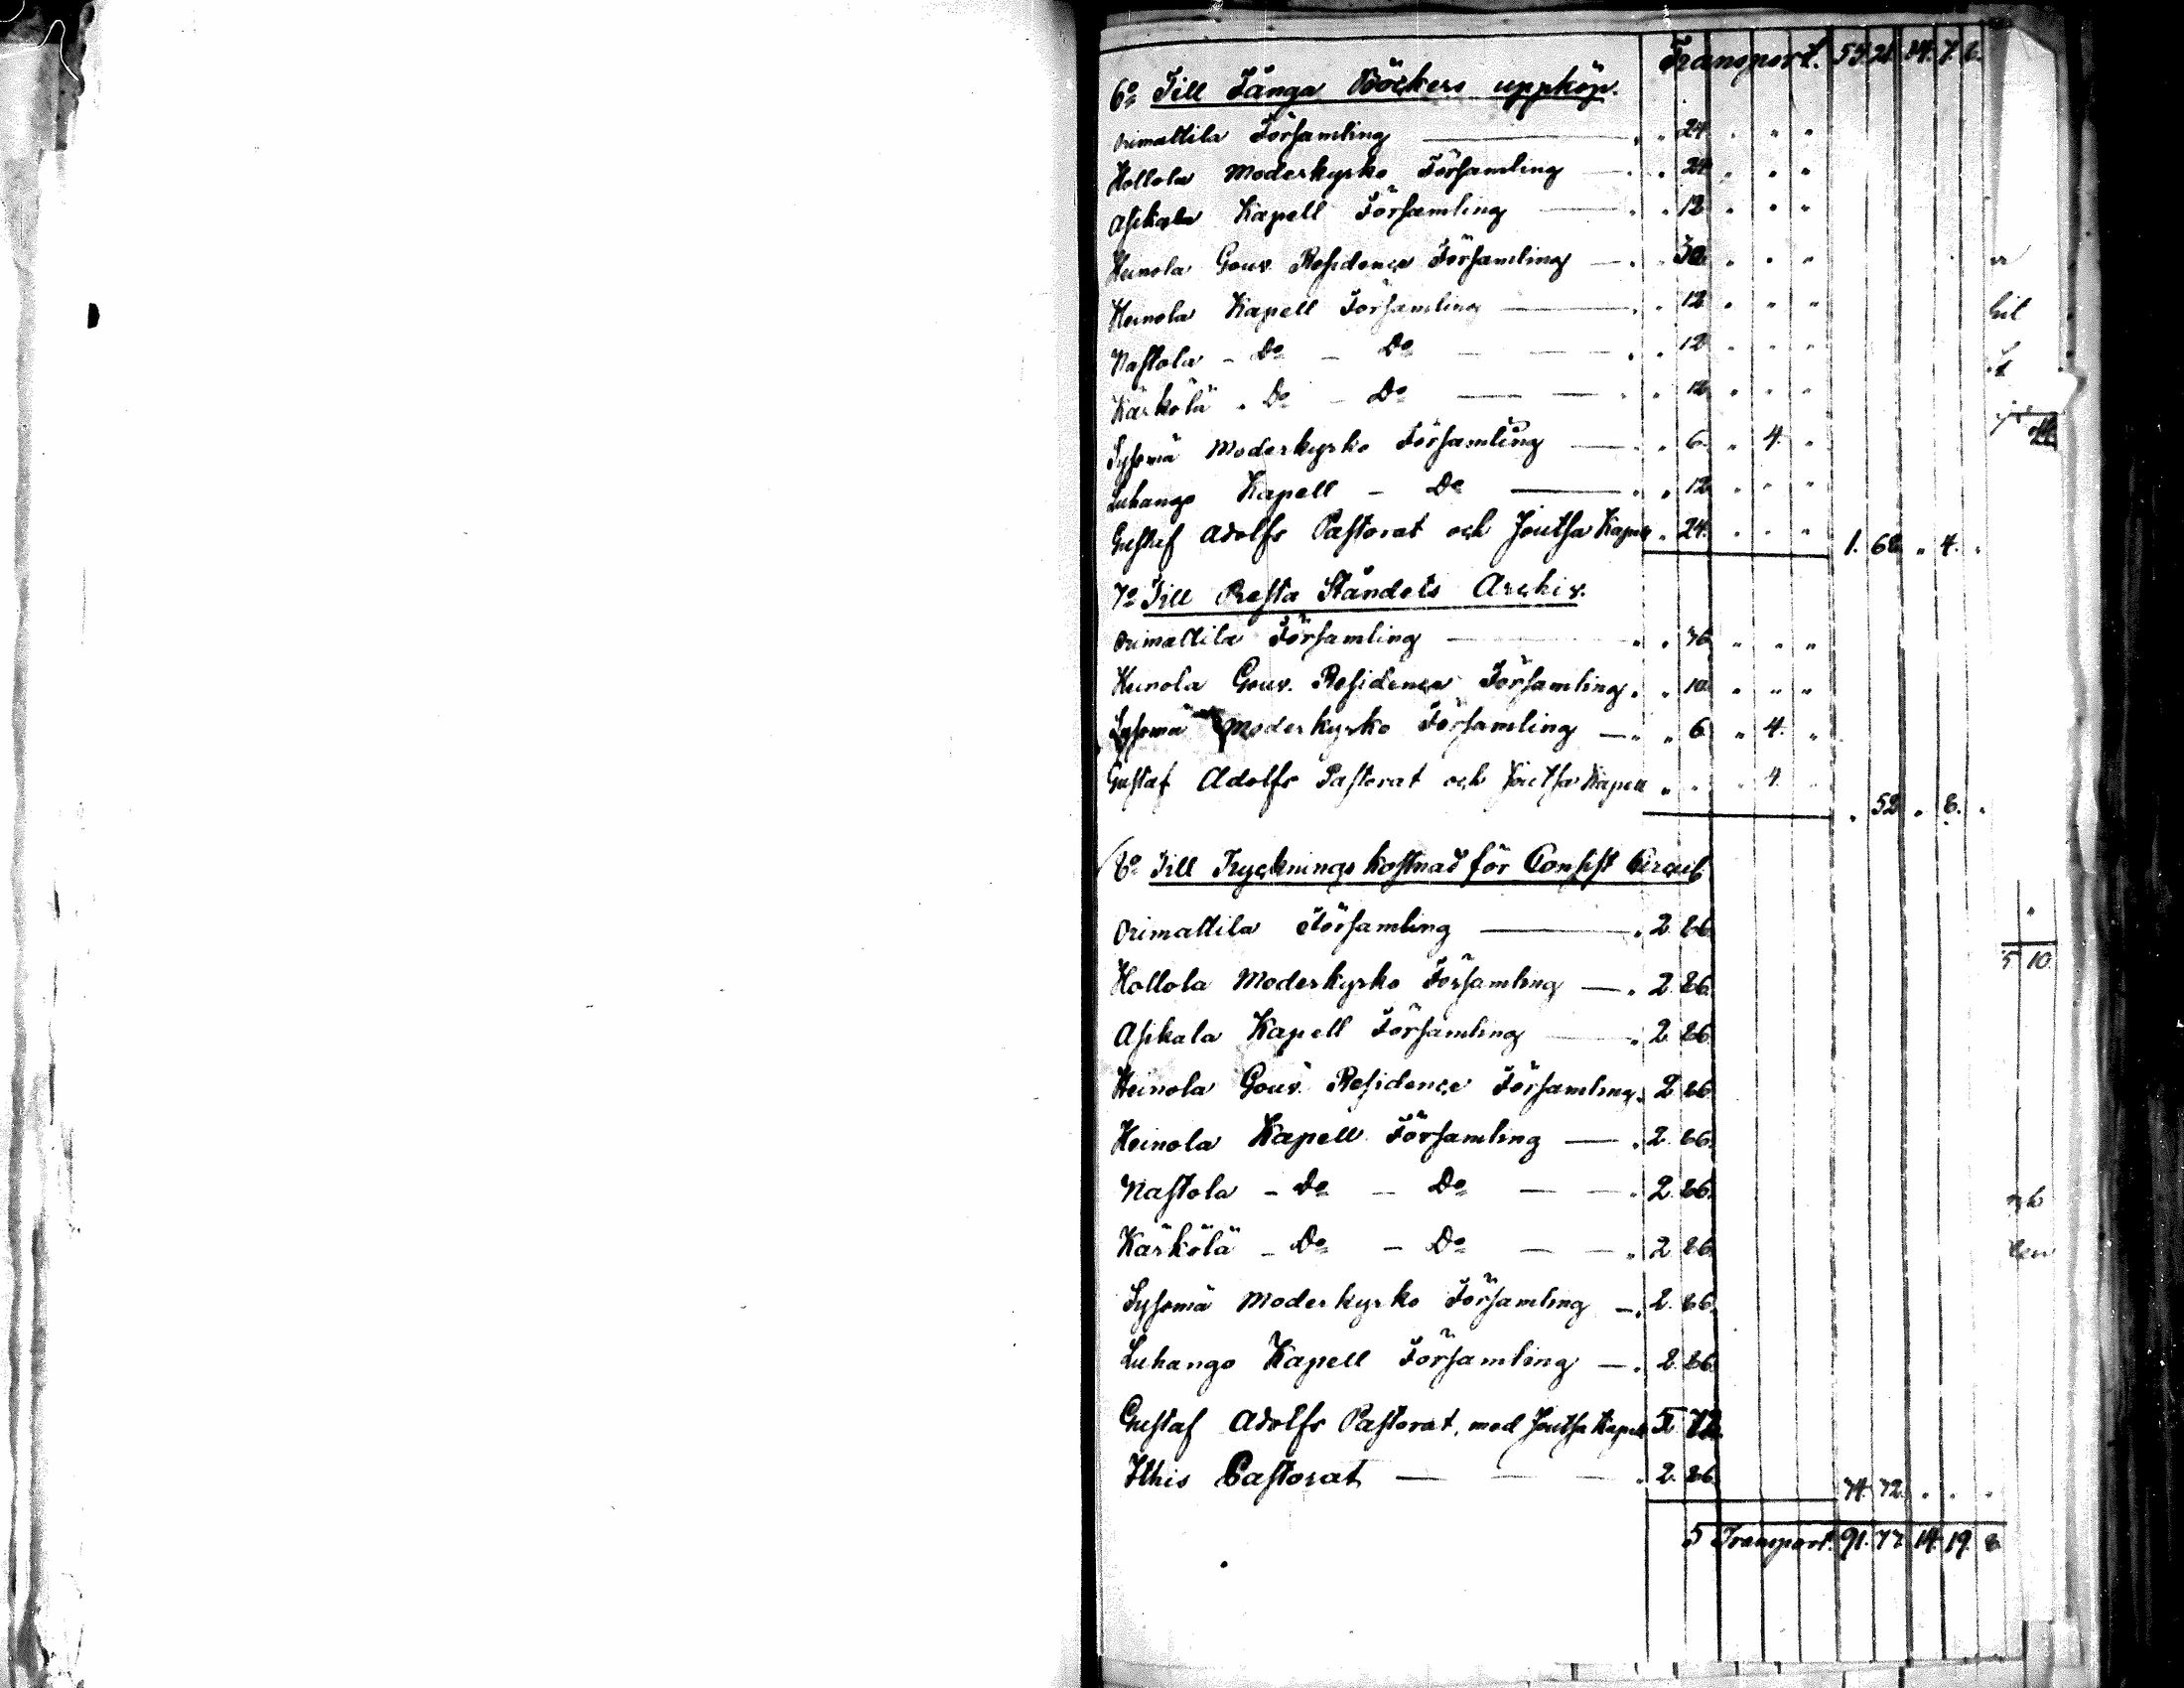 Transport. 55. 21. 14. 7. 8.
6o Till Fånga Böckers uppköp.
Orimattila Församling " " 24 " " "
Hollola Moderkyrko Församling " " 24 " " "
Asikala Kapell Församling " " 12 " " "
Heinola Gouv. Residence Församling " " 30 " " "
Heinola Kapell Församling " " 12 " " "
Nastola - Do - Do " " 12 " " "
Kärkölä - Do - Do " " 12 " " "
Sysmä Moderkyrko Församling " " 6. " 4. "
Luhango Kapell - Do " " 12 " " "
Gustaf Adolfs Pastorat och Joutsa Kapell " 24. " " " 1. 68 " 4. "
7o Till Presta Ståndets Archiv.
Orimattila Församling " " 36 " " "
Heinola Gouv. Residence Församling " " 10 " " "
Sysmä Moderkyrko Församling " " 6 " 4. "
Gustaf Adolfs Pastorat och Joutsa Kapell " " " 4. " " 52 " 8. "
8o Till Tryckningskostnad för Consist Circul.
Orimattila Församling " 2. 86.
Hollola Moderkyrko Församling " 2. 86.
Asikala Kapell Församling " 2. 86.
Heinola Gouv. Residence Församling " 2. 86.
Heinola Kapell Församling " 2. 86.
Nastola - Do - Do " 2. 86.
Kärkölä - Do - Do " 2. 86.
Sysmä Moderkyrko Församling " 2. 86.
Luhango Kapell Församling " 2. 86.
Gustaf Adolfs Pastorat, med Joutsa Kapell 5. 72.
Ithis Pastorat " 2. 86. 34. 72. " " "
Transport. 91. 77. 14. 19. 8.